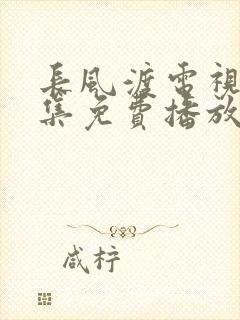 長風渡電視
集免費播放
咸柠